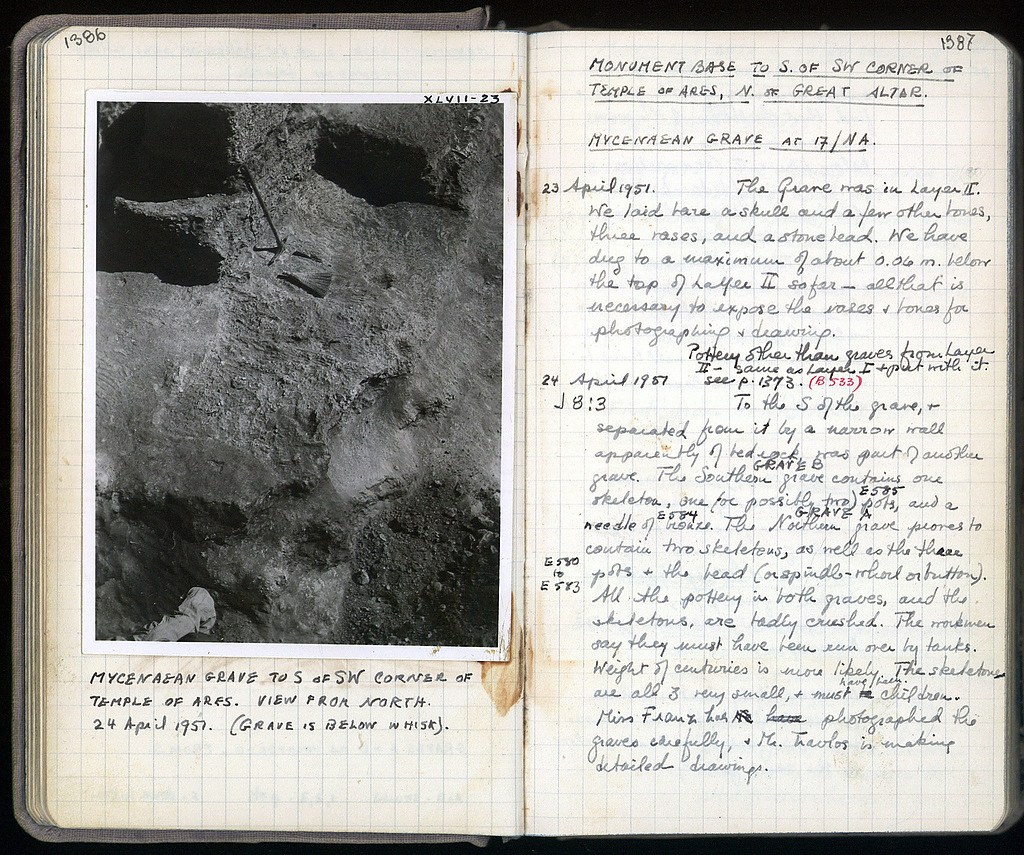 1386
XLVII-23
MYCENAEAN GRAVE TO S OF SW CORNER OF
TEMPLE OF ARES. VIEW FROM NORTH.
24 April 1951. (GRAVE IS BELOW WHISK).
1387
MONUMENT BASE TO S. OF SW CORNER OF
TEMPLE OF ARES, N. OF GREAT ALTAR.
MYCENAEAN GRAVE AT 17/NA.
23 April 1951. The Grave was in Layer II.
We laid bare a skull and a few other bones,
three vases, and a stone bead. We have
dug to a maximum of about 0.06 m. below
the top of Layer II so far — all that is
necessary to expose the vases + bones for
photographing + drawing.
Pottery other than graves from Layer
II - same as Layer I + put with it.
see p. 1373. (B 533)
24 April 1951
J 8:3 To the S of the grave, +
separated from it by a narrow wall
apparently of bedrock, was part of another
GRAVE B
grave. The Southern grave contains one
E 585
skeleton, one (or possibly two) pots, and a
E 584 GRAVE A
needle of bronze. The Northern grave proves to
contain two skeletons, as well as the three
E 580
to
E 583
pots + the bead (or spindle-whorl or button).
All the pottery in both graves, and the
skeletons, are badly crushed. The workmen
say they must have been run over by tanks.
Weight of centuries is more likely. The skeletons
have been
are all 3 very small, + must children.
Miss Frantz has photographed the
graves carefully, + Mr. Travlos is making
detailed drawings.